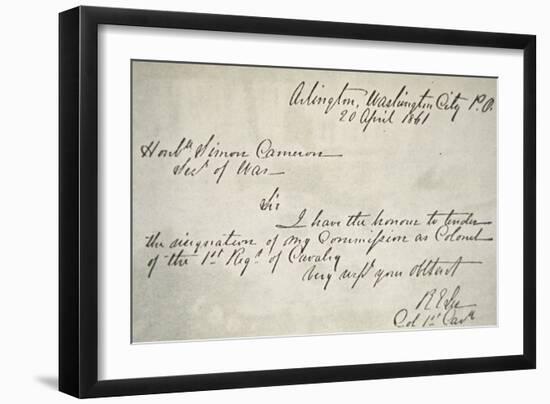 Arlington, Washington City P.O.
20 April 1861
Honble Simon Cameron
Secy of War
Sir
I have the honour to tender
the resignation of my Commission as Colonel
of the 1st Regt of Cavalry
Very respy your obtservt
R E Lee
Col 1st Cavy